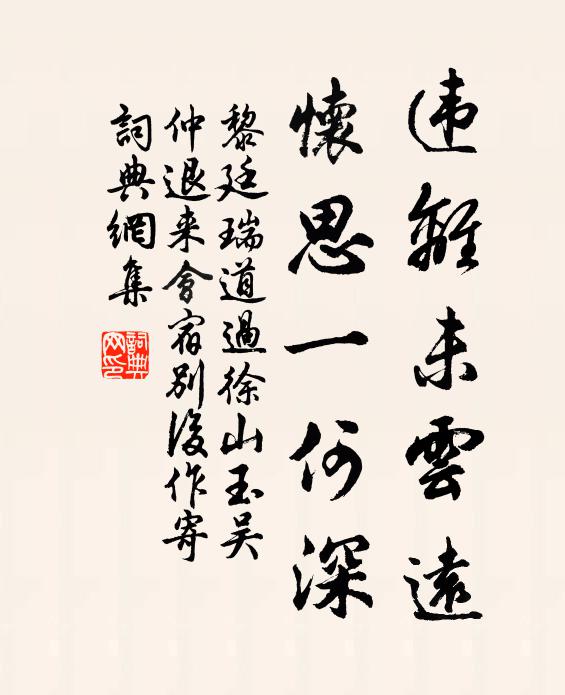 违離未雲遠
懷思一何深
黎廷瑞道過徐山玉吴
仲退来會宿别後作寄
詞典網集
詞典
网印